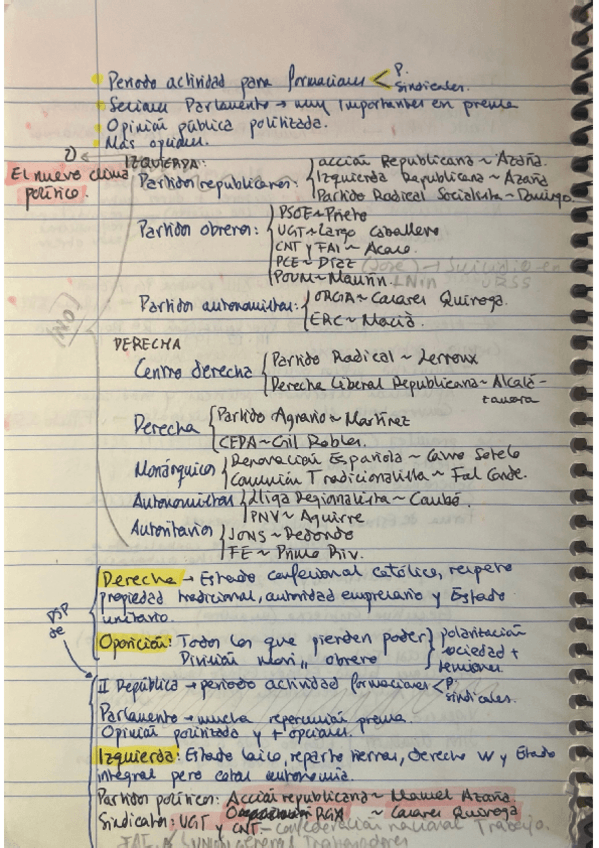 Periodo actividad para formaciones < P.
sindicales.
Sesiones Parlamento → muy importantes en prensa
Opinión pública politizada.
Más opciones.
2)
El nuevo clima político.
IZQUIERDA:
Partidos republicanos: { acción Republicana ~ Azaña.
Izquierda Republicana ~ Azaña
Partido Radical Socialista ~ Domingo.
Partidos obreros: { PSOE ~ Prieto
UGT ~ Largo Caballero
CNT y FAI ~ Ascaso.
PCE ~ Díaz (José)
POUM ~ Maurín. Nin URSS
Partidos autonomistas: { ORGA ~ Casares Quiroga.
ERC ~ Macià.
DERECHA
Centro derecha { Partido Radical ~ Lerroux
Derecha Liberal Republicana ~ Alcalá-
zamora
Derecha { Partido Agrario ~ Martínez
CEDA ~ Gil Robles.
Monárquicos { Renovación Española ~ Calvo Sotelo
Comunión Tradicionalista ~ Fal Conde.
Autonomistas { Lliga Regionalista ~ Cambó.
PNV ~ Aguirre
Autoritarios { JONS ~ Redondo
FE ~ Primo Riv.
Derecha → Estado confesional católico, respeto
propiedad tradicional, autoridad empresario y Estado
unitario.
Oposición: Todos los que pierden poder } polarización
División movi,, obrero sociedad +
tensiones
II República → periodo actividad formaciones < P.
sindicales.
Parlamento → mucha repercusión prensa.
Opinión politizada y + opciones.
Izquierda: Estado laico, reparto tierras, derecho w y Estado
integral pero cotas autonomía.
Partidos políticos: Acción republicana ~ Manuel Azaña.
ORGA ~ Casares Quiroga
Sindicatos: UGT y CNT - confederación nacional Trabajo.
Unión general Trabajadores